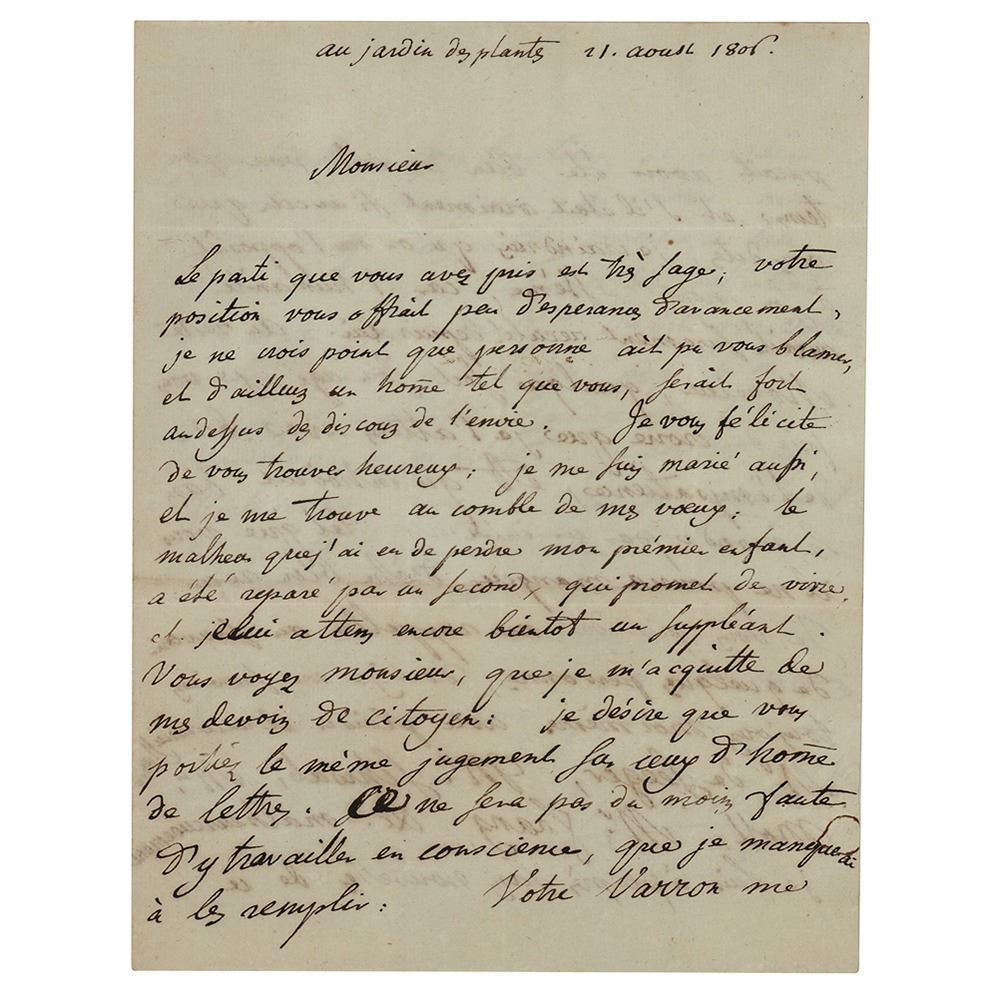 au jardin des plantes 21. aoust 1806.
Monsieur
Le parti que vous avez pris est très sage; votre
position vous offrait peu d'esperances d'avancement,
je ne crois point que personne ait pu vous blamer,
et d'ailleurs un home tel que vous, serait fort
audessus des discours de l'envie. Je vous félicite
de vous trouver heureux; je me suis marié aussi,
et je me trouve au comble de mes vœux; le
malheur que j'ai eu de perdre mon prémier enfant,
a été reparé par un second, qui promet de vivre,
et je lui attens encore bientot un suppléant.
Vous voyez monsieur, que je m'acquitte de
mes devoirs de citoyen: je désire que vous
portiéz le même jugement sur ceux d'home
de lettres. Ce ne sera pas du moins faute
d'y travailler en conscience, que je manquerai
à les remplir: Votre Varron me